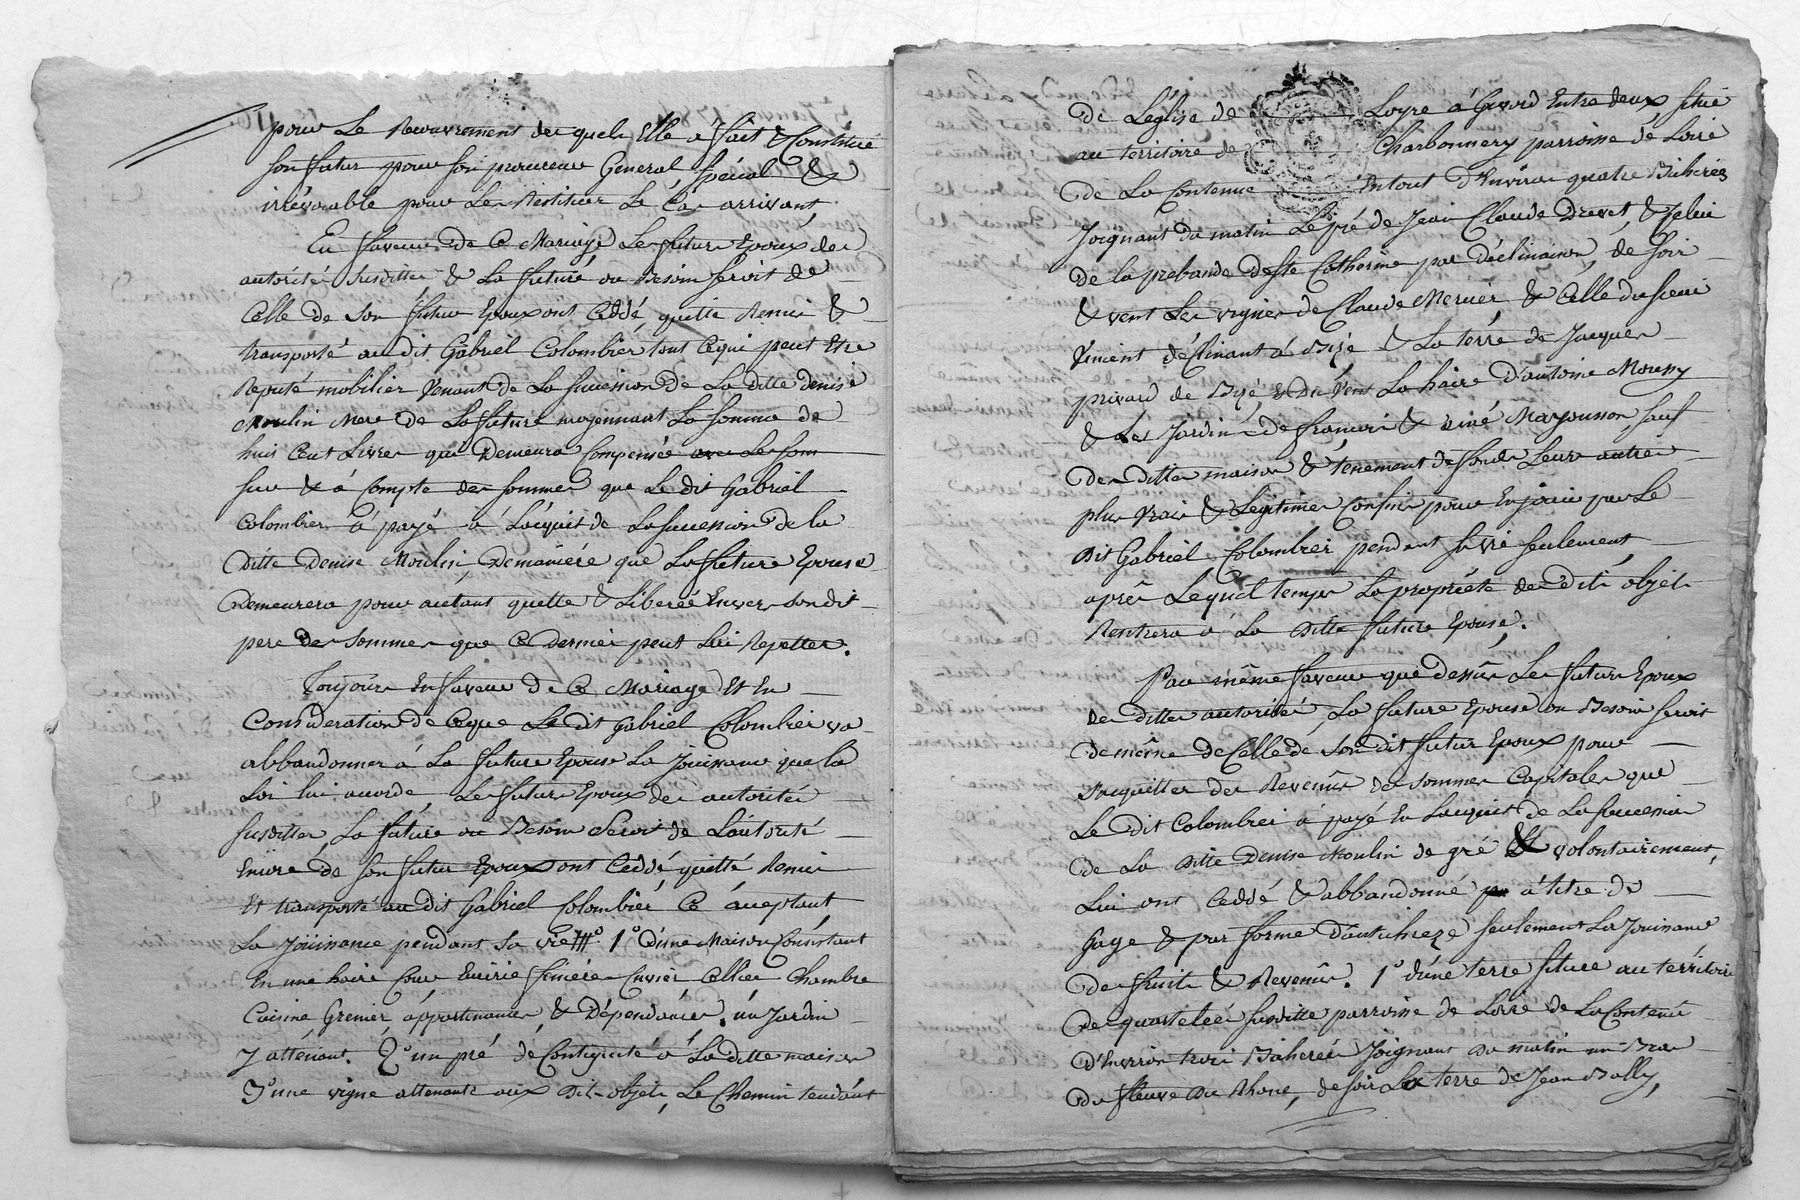 pour Le Recouvrement des quels Elle a fait & Constitué
son futur pour son procureur General spécial &
irrévocable pour Les Restituer Le Cas arrivant
En faveur de Ce Mariage Les futurs Epoux des
autorités susdittes & La future ou Besoin seroit de
Celle de Son futur Epoux ont Cédé quitté Remis &
transporté au dit Gabriel Colombier tout Cequi peut Etre
Reputé mobilier Venant de La succession de La ditte denise
Moulin Mere de La future moyennant La Somme de
huit Cent Livres qui Demeure Compensée avec Les som
sur & à Compte des sommes que Le dit Gabriel
Colombier à payé à L'acquit de La succession de la
ditte Denise Moulin Demaniére que La future Epouse
Demeurera pour autant quitte & Liberée Envers Son dit
pere des Sommes que Ce dernier peut Lui Repetter.
Toujours En faveur de Ce Mariage Et En
Consideration de Ceque Le dit Gabriel Colombier va
abbandonner à La future Epouse La Jouisance que la
Loi lui acorde Les futurs Epoux des autorités
susdittes La future ou Besoin Seroit de L'autorité
Encore de Son futur Epoux ont Ceddé quitté Remis
Et transporté au dit Gabriel Colombier Ce acceptant
La Joüisance pendant Sa vie 1.° d'une Maison Consistant
En une haire Cour Ecurie feniére Cuvier Cellier Chambre
Cuisine Grenier appartenances & Dépendances, un Jardin
Y attenant. 2.° un pré de Contiguité à La ditte maison
3.° une vigne attenante aux Dits objets, Le Chemin tendant
de L'église de Loyre à Givord Entre deux situé
au territoire de Charbonnery parroisse de Loire
De La Contenue En tout D'Environ quatre Bicherées
Joignant du matin Le pré de Jean Claude Drevet, & Celui
De la prebande de Ste Catherine par déclinaison, de soir
& vent Les vignes de Claude Mercier & Celle du sieur
Viment déclinant à Bize & La terre de Jacques
privard de Bize & Du Vent La haire D'antoine Mousy
& Les Jardins de francois & aimé Mazousson sauf
Des dittes maison & tenement de fonds Leurs autres
plus Vrais & Legitimes Confins pour En jouir par Le
Dit Gabriel Colombier pendant sa vie seulement
après Lequel temps La propriété des dits objets
Rentrera à La ditte future Epouse.
Par même faveur que dessus Les futurs Epoux
des dittes autorités La future Epouse ou Besoin seroit
de même de Celle de Son dit futur Epoux pour
sacquitter des Revenus des sommes Capitales que
Le dit Colombier à payé En Lacquit de La succession
de La ditte Denise Moulin de gré & volontairement,
Lui ont Ceddé & abbandonné à titre de
Gage & par forme D'anticreze seulement La Jouisance
Des fruits & Revenus. 1.° d'une terre située au territoire
Des quartelées susditte parroisse de Loire de La Contenüe
D'Environ trois Bicherées Joignant Du matin un Bras
Du fleuve Du Rhone, de soir La terre de Jean Bally,